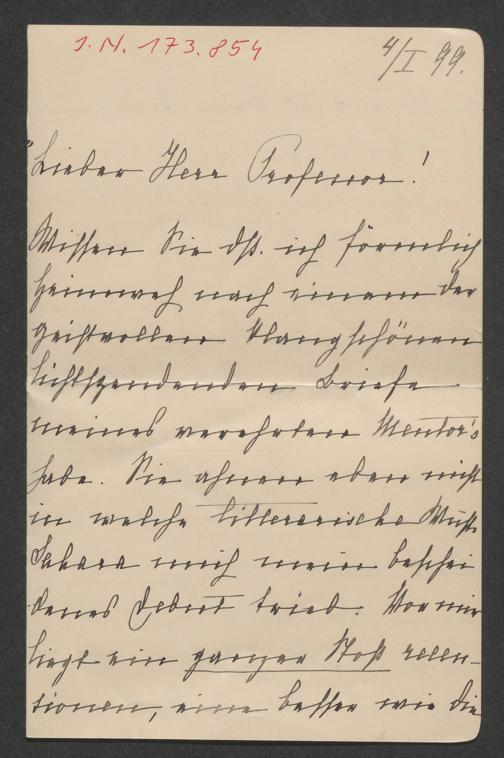 J.N. 173.854
4/I 99.
Lieber Herr Professor!
Wissen Sie dß. ich förmlich
Heimweh nach einem der
geistvollen klangschönen
lichtspendenden Briefe
meines verehrten Mentor's
habe. Sie ahnen eben nicht
in welche litterarische Wüste
Sahara mich mein beschei
denes Debut trieb. Vor mir
liegt ein ganzer Stoß recen-
sionen, eine besser wie die